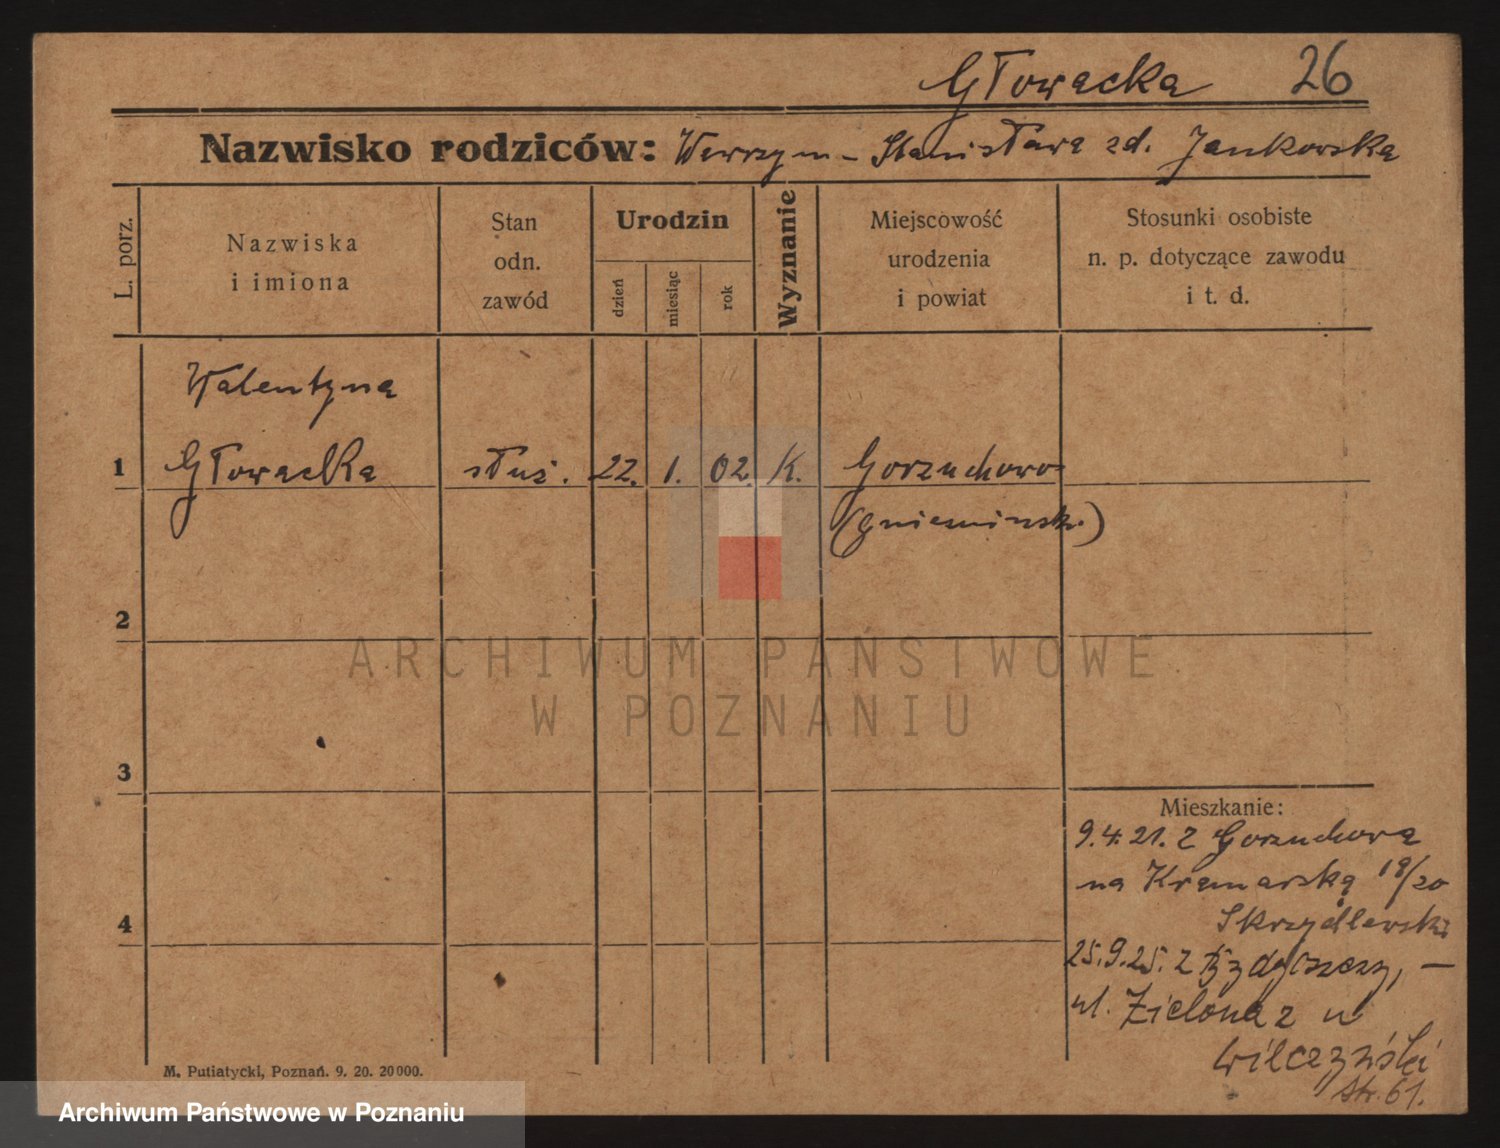 Głowacka 26
Nazwisko rodziców: Wawrzyn - Stanisława zd. Jankowska
L. porz.
Nazwiska
i imiona
Stan
odn.
zawód
Urodzin
dzień
miesiąc
rok
Wyznanie
Miejscowość
urodzenia
i powiat
Stosunki osobiste
n. p. dotyczące zawodu
i t. d.
Walentyna
1 Głowacka służ. 22. 1. 02. K. Gorzuchowo
(gnieźnińsk.)
2
ARCHIWUM PAŃSTWOWE
W POZNANIU
3
Mieszkanie:
9.4.21. z Gorzuchowa
na Kramarską 19/20
Skrzydlewski
4
25.9.25. z Bydgoszczy, —
ul. Zielona 2 u
Wilczyński
str. 61.
M. Putiatycki, Poznań. 9. 20. 20000.
Archiwum Państwowe w Poznaniu